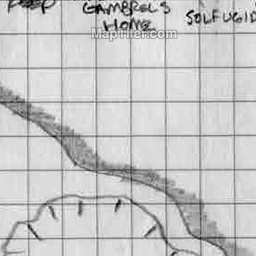 GAMBREL'S
HOME
SOLFUGID
MapTiler.com